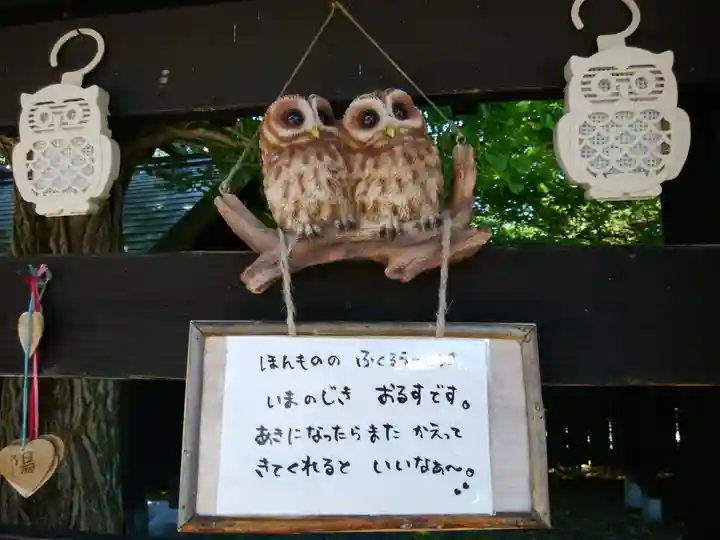 ほんものの ふくろう
いまのじき おるすです。
あきになったらまた かえって
きてくれると いいなぁ～。